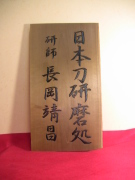 日本刀研磨処
研師 長岡靖昌